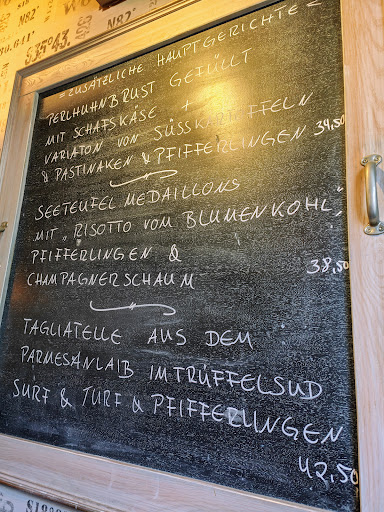 = ZUSÄTZLICHE HAUPTGERICHTE =
PERLHUHNBRUST GEFÜLLT
MIT SCHAFSKÄSE +
VARIATON VON SÜSSKARTOFFELN
& PASTINAKEN & PFIFFERLINGEN 34,50
SEETEUFELMEDAILLONS
MIT „RISOTTO VOM BLUMENKOHL",
PFIFFERLINGEN &
CHAMPAGNERSCHAUM
38,50
TAGLIATELLE AUS DEM
PARMESANLAIB IM TRÜFFELSUD
SURF & TURF & PFIFFERLINGEN
42,50